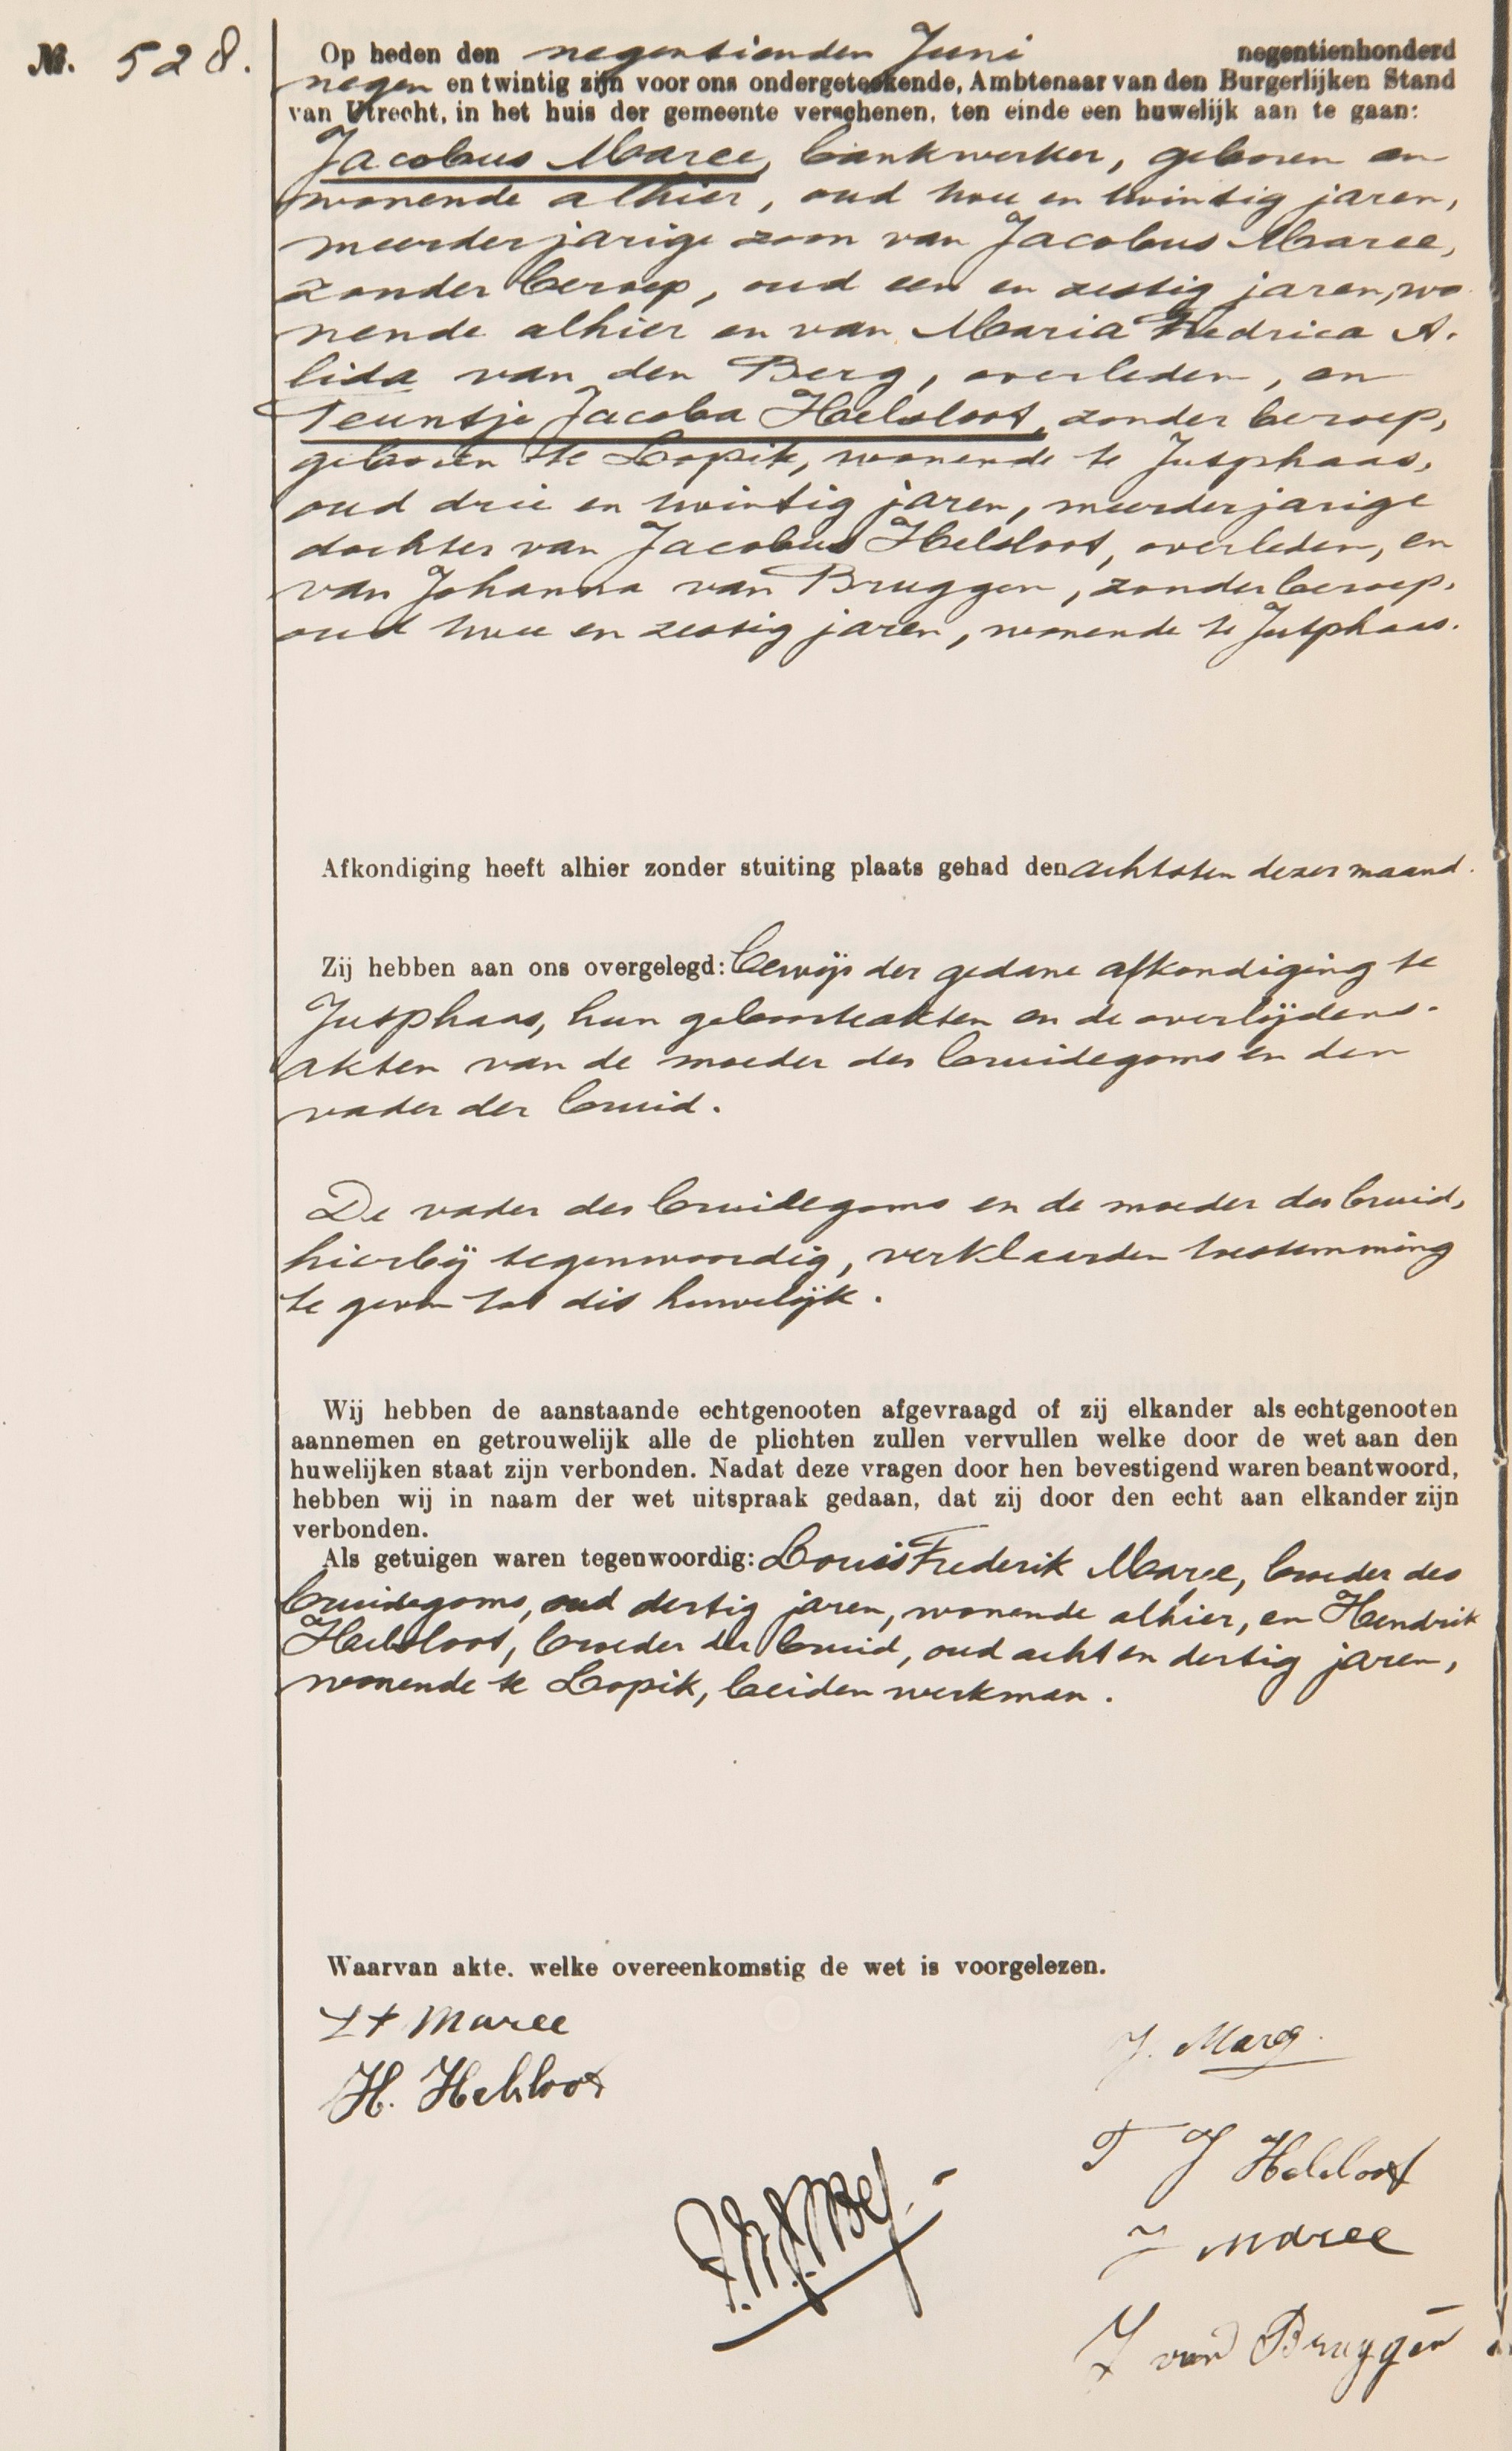 No. 528.
Op heden den negentienden Juni negentienhonderd
negen en twintig zijn voor ons ondergeteekende, Ambtenaar van den Burgerlijken Stand
van Utrecht, in het huis der gemeente verschenen, ten einde een huwelijk aan te gaan:
Jacobus Maree, bankwerker, geboren en
wonende alhier, oud twee en twintig jaren,
meerderjarige zoon van Jacobus Maree,
zonder beroep, oud een en zestig jaren, wo
nende alhier en van Maria Fredrica A.
lida van den Berg, overleden, en
Teuntje Jacoba Helsloot, zonder beroep,
geboren te Lopik, wonende te Jutphaas,
oud drie en twintig jaren, meerderjarige
dochter van Jacobus Helsloot, overleden, en
van Johanna van Bruggen, zonder beroep,
oud twee en zestig jaren, wonende te Jutphaas.
Afkondiging heeft alhier zonder stuiting plaats gehad den achtsten dezer maand.
Zij hebben aan ons overgelegd: bewijs der gedane afkondiging te
Jutphaas, hun geboorteakten en de overlijdens-
akten van de moeder des bruidegoms en den
vader der bruid.
De vader des bruidegoms en de moeder der bruid,
hierbij tegenwoordig, verklaarden toestemming
te geven tot dit huwelijk.
Wij hebben de aanstaande echtgenooten afgevraagd of zij elkander als echtgenooten
aannemen en getrouwelijk alle de plichten zullen vervullen welke door de wet aan den
huwelijken staat zijn verbonden. Nadat deze vragen door hen bevestigend waren beantwoord,
hebben wij in naam der wet uitspraak gedaan, dat zij door den echt aan elkander zijn
verbonden.
Als getuigen waren tegenwoordig: Louis Frederik Maree, broeder des
bruidegoms, oud dertig jaren, wonende alhier, en Hendrik
Helsloot, broeder der bruid, oud acht en dertig jaren,
wonende te Lopik, beiden werkman.
Waarvan akte, welke overeenkomstig de wet is voorgelezen.
Maree
H. Helsloot
J. Maree
T J Helsloot
J Maree
J van Bruggen